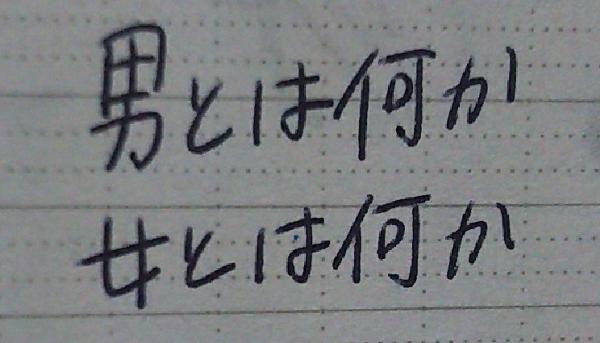 男とは何か
女とは何か